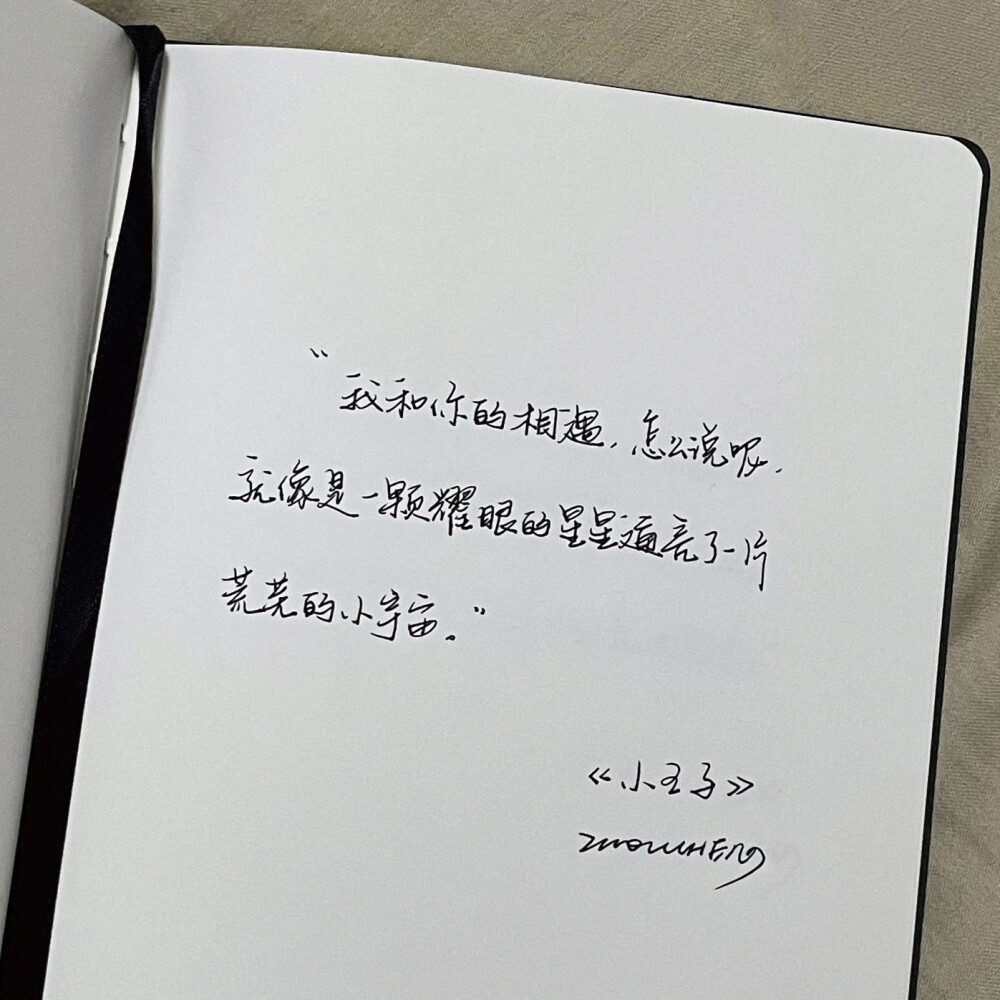 “我和你的相遇，怎么说呢，
就像是一颗耀眼的星星逼亮了一片
荒芜的小宇宙。”
《小王子》